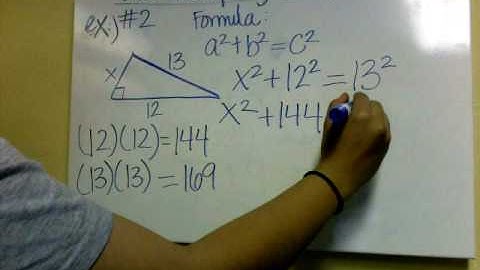 ex.) #2
Formula:
a²+b²=c²
x
13
12
x²+12²=13²
x²+144
(12)(12)=144
(13)(13)=169